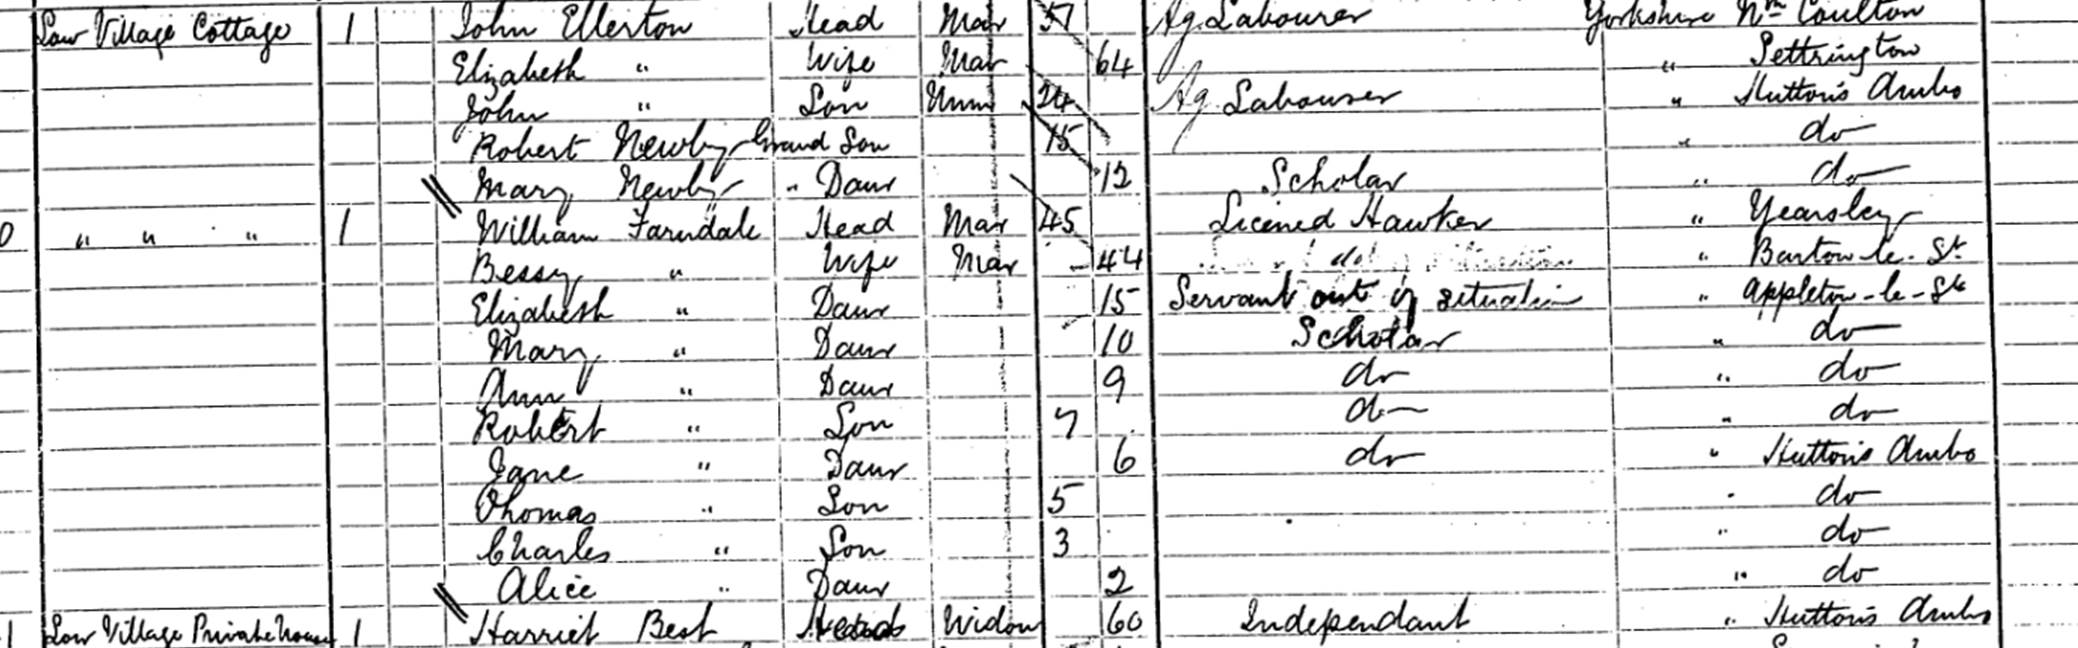 Low Village Cottage 1 John Ellerton Head Mar 57 Ag. Labourer Yorkshire Nth Coulton
Elizabeth " Wife Mar 64 " Settrington
John " Son Unm 24 Ag Labourer " Huttons Ambo
Robert Newby Grand Son 15 " do
Mary Newby " Daur 12 Scholar " do
0 " " " 1 William Farndale Head Mar 45 Licened Hawker " Yearsley
Bessy " Wife Mar 44 " Barton-le-St
Elizabeth " Daur 15 Servant out of situation " Appleton-le-St
Mary " Daur 10 Scholar " do
Ann " Daur 9 do " do
Robert " Son 7 do " do
Jane " Daur 6 do " Huttons Ambo
Thomas " Son 5 " do
Charles " Son 3 " do
Alice " Daur 2 " do
1 Low Village Private house 1 Harriet Best Head Widow 60 Independant " Huttons Ambo